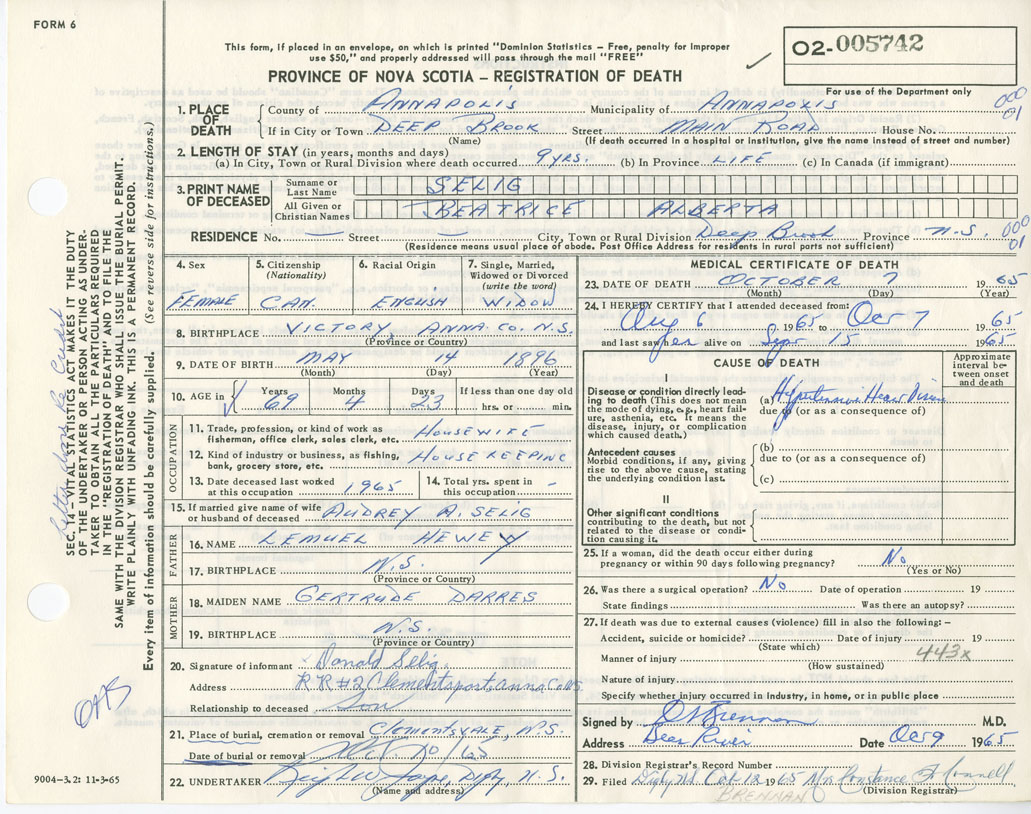 FORM 6
This form, if placed in an envelope, on which is printed "Dominion Statistics – Free, penalty for improper
use $50," and properly addressed will pass through the mail "FREE"
PROVINCE OF NOVA SCOTIA – REGISTRATION OF DEATH
O2-005742
For use of the Department only
000
01
1. PLACE OF DEATH { County of ANNAPOLIS Municipality of ANNAPOLIS
If in City or Town DEEP BROOK Street MAIN ROAD House No.
(Name) (If death occurred in a hospital or institution, give the name instead of street and number)
2. LENGTH OF STAY (in years, months and days)
(a) In City, Town or Rural Division where death occurred 9 yrs. (b) In Province LIFE (c) In Canada (if immigrant)
3. PRINT NAME OF DECEASED
Surname or Last Name SELIG
All Given or Christian Names BEATRICE ALBERTA
RESIDENCE No. — Street City, Town or Rural Division Deep Brook Province N.S. 000 01
(Residence means usual place of abode. Post Office Address for residents in rural parts not sufficient)
4. Sex FEMALE
5. Citizenship (Nationality) CAN.
6. Racial Origin ENGLISH
7. Single, Married, Widowed or Divorced (write the word) WIDOW
8. BIRTHPLACE VICTORY, ANNA. CO. N.S.
(Province or Country)
9. DATE OF BIRTH MAY 14 1896
(Month) (Day) (Year)
10. AGE in { Years 69 Months 4 Days 23 If less than one day old hrs. or min.
OCCUPATION
11. Trade, profession, or kind of work as fisherman, office clerk, sales clerk, etc. HOUSEWIFE
12. Kind of industry or business, as fishing, bank, grocery store, etc. HOUSE KEEPING
13. Date deceased last worked at this occupation 1965
14. Total yrs. spent in this occupation -
15. If married give name of wife or husband of deceased AUDREY A. SELIG
FATHER
16. NAME LEMUEL HEWEY
17. BIRTHPLACE N.S.
(Province or Country)
MOTHER
18. MAIDEN NAME GERTRUDE DARRES
19. BIRTHPLACE N.S.
(Province or Country)
20. Signature of informant x Donald Selig
Address RR#2 Clementsport Anna Co NS
Relationship to deceased Son
21. Place of burial, cremation or removal CLEMENTSVALE, N.S.
Date of burial or removal 10/65
22. UNDERTAKER Digby, N.S.
(Name and address)
MEDICAL CERTIFICATE OF DEATH
23. DATE OF DEATH OCTOBER 7 1965
(Month) (Day) (Year)
24. I HEREBY CERTIFY that I attended deceased from:
Aug 6 1965 to Oct 7 1965
and last saw her alive on Sept 15 1965
CAUSE OF DEATH
Approximate interval between onset and death
I
Disease or condition directly leading to death (This does not mean the mode of dying, e.g., heart failure, asthenia, etc. It means the disease, injury, or complication which caused death.)
(a) Hypertension Heart Disease
due to (or as a consequence of)
Antecedent causes
Morbid conditions, if any, giving rise to the above cause, stating the underlying condition last.
(b)
due to (or as a consequence of)
(c)
II
Other significant conditions contributing to the death, but not related to the disease or condition causing it.
25. If a woman, did the death occur either during pregnancy or within 90 days following pregnancy? No
(Yes or No)
26. Was there a surgical operation? No Date of operation 19
State findings Was there an autopsy?
27. If death was due to external causes (violence) fill in also the following: –
Accident, suicide or homicide? Date of injury 19
(State which)
443X
Manner of injury
(How sustained)
Nature of injury
Specify whether injury occurred in industry, in home, or in public place
Signed by Brennan M.D.
Address Bear River Date Oct 9 1965
28. Division Registrar's Record Number
29. Filed Digby N.S. Oct 12 1965 Mrs Constance
(Division Registrar)
BRENNAN
9004-3.2: 11-3-65
SEC. 16 – VITAL STATISTICS ACT MAKES IT THE DUTY
OF THE UNDERTAKER OR PERSON ACTING AS UNDERTAKER
TO OBTAIN ALL THE PARTICULARS REQUIRED
IN THE "REGISTRATION OF DEATH" AND TO FILE THE
SAME WITH THE DIVISION REGISTRAR WHO SHALL ISSUE THE BURIAL PERMIT.
WRITE PLAINLY WITH UNFADING INK. THIS IS A PERMANENT RECORD.
Every item of information should be carefully supplied. (See reverse side for instructions.)